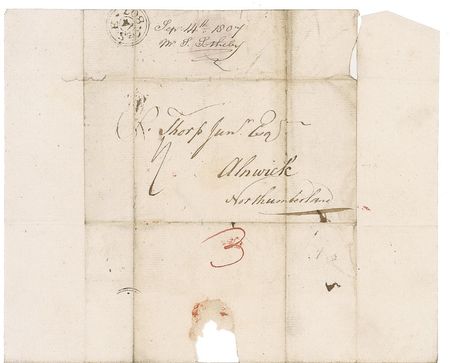 Sep. 14th 1807
Mr. S. Sotheby
R. Thorp Junr. Esqr.
Alnwick
Northumberland
3